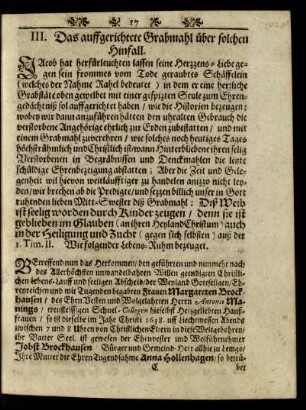 17
III. Das auffgerichtete Grabmahl über solchen
Hinfall.
JAcob hat herfürleuchten lassen seine Hertzens-Liebe ge-
gen sein frommes vom Tode geraubtes Schäffelein
(welches der Nahme Rahel bedeutet) in dem er eine herrliche
Grabstäte oben gewelbet mit einer gespitzten Seule zum Ehren-
gedächtniß sol auffgerichtet haben / wie die Historien bezeugen:
wobey wir dann anzuführen hätten den uhralten Gebrauch die
verstorbene Angehörige ehrlich zur Erden zubestatten / und mit
einem Grabmahl zuverehren / wie solches noch heutiges Tages
höchstrühmlich und Christlich ist / wann Hinterbliebene ihren selig
Verstorbenen in Begräbnissen und Denckmahlen die letzte
schuldige Ehrenbezeigung abstatten; Aber die Zeit und Gele-
genheit wil hiervon weitläufftiger zu handelen anitzo nicht ley-
den / wir brechen ab die Predigt / und setzen billich unser in Gott
ruhenden lieben Mitt-Swester diß Grabmahl: Diß Weib
ist seelig worden durch Kinder zeugen / denn sie ist
geblieben im Glauben (an ihren Heyland Christum) auch
in der Heiligung und Zucht (gegen sich selbsten) auß der
1. Tim. II. Wie folgender Lebens-Ruhm bezeuget.
BEtreffend nun das Herkommen / den geführten und nunmehr nach
des Allerhöchsten unwandelbahren Willen geendigten Christli-
chen Lebens-Lauff und seeligen Abscheid der Weyland Gottseligen / Eh-
renreichen und mit Tugenden begaben Frauen Margareten Brock-
hausen / des Ehrn Vesten und Wolgelahrten Herrn Antonii Ma-
nings / treufleissigen Schul-Collegen hieselbst Hertzgeliebten Hauß-
frauen / so ist dieselbe im Jahr Christi 1638. auff Liechtmessen Abends
zwischen 7 und 8 Uhren von Christlichen Eltern in diese Welt gebohren /
ihr Vatter Seel. ist gewesen der Ehnvester und Wolfürnehmer
Jobst Brockhausen / Bürger und Gemeind-Herr allhie zu Lemgo /
Ihre Mutter die Ehren Tugendsahme Anna Hollenhagen / so derü-
C ber